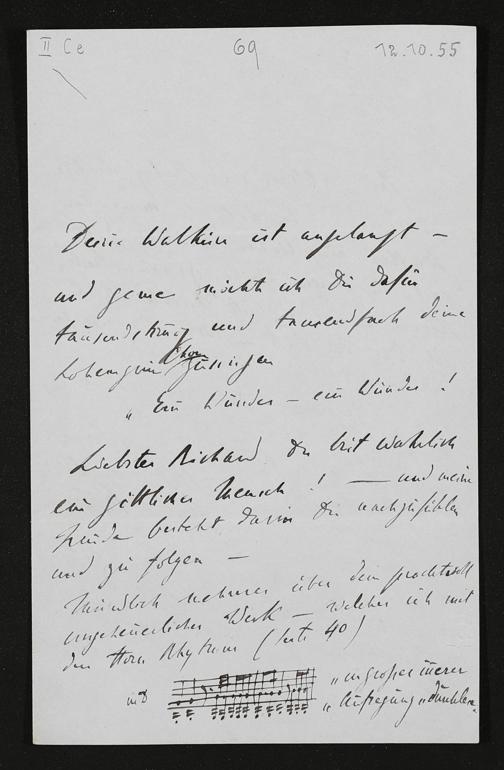 II Ce 69 12.10.55
Deine Walküre ist angelangt –
und gerne möchte ich Dir dafür
tausendstimmig und tausendfach deinen
Chor
Lohengrin zusingen
„Ein Wunder – ein Wunder!
Liebster Richard du bist wahrlich
ein göttlicher Mensch! — und meine
Freude besteht darin Dir nachzufühlen
und zu folgen –
Mündlich mehreres über dein prachtvoll
ungeheuerliches Werk – welches ich mit
dem Horn Rhythmus (Seite 40)
in D
„in grosser innerer
„Aufregung „